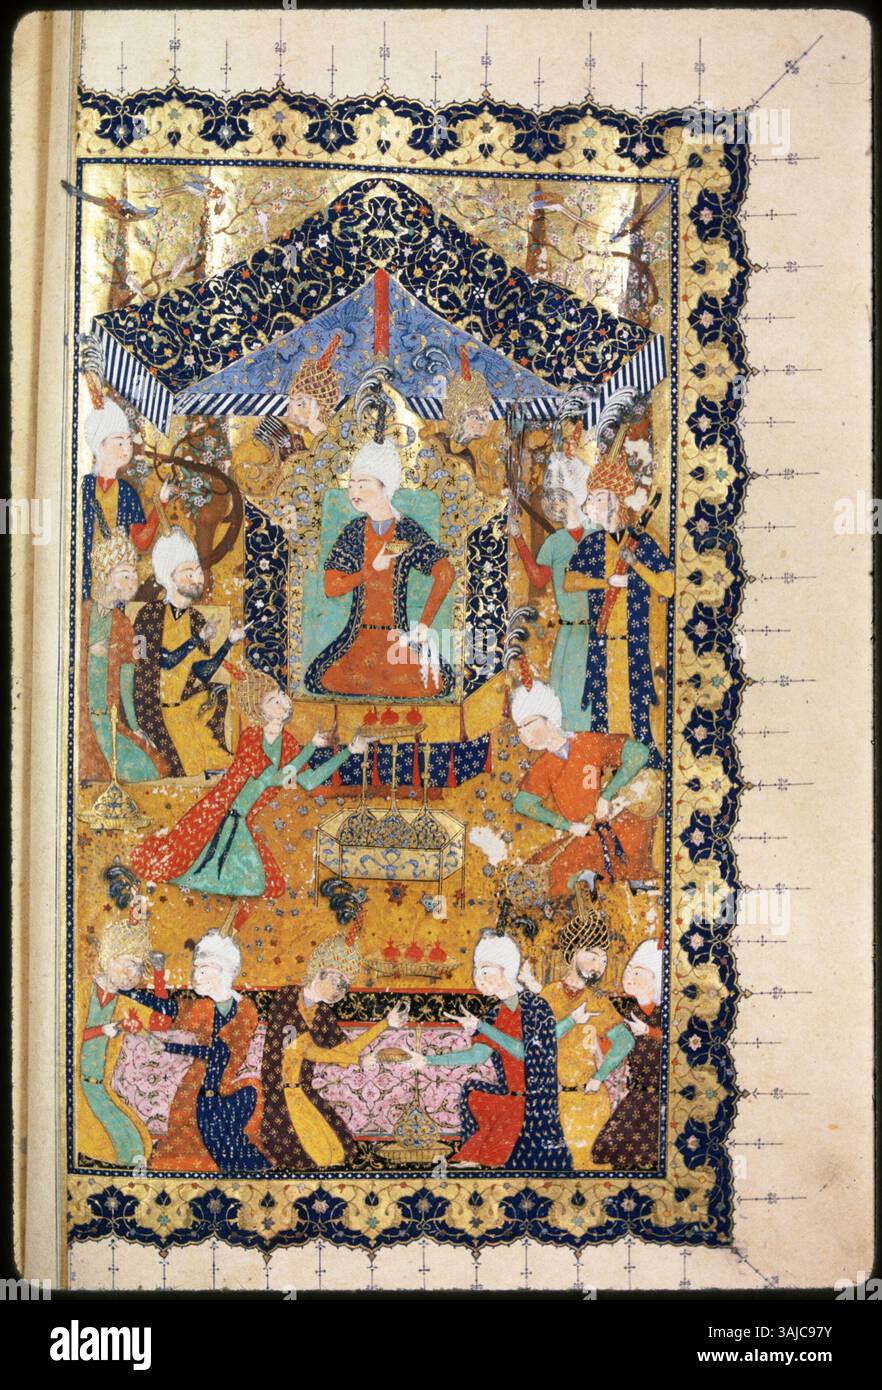 alamy
Image ID: 3AJC97Y
www.alamy.com